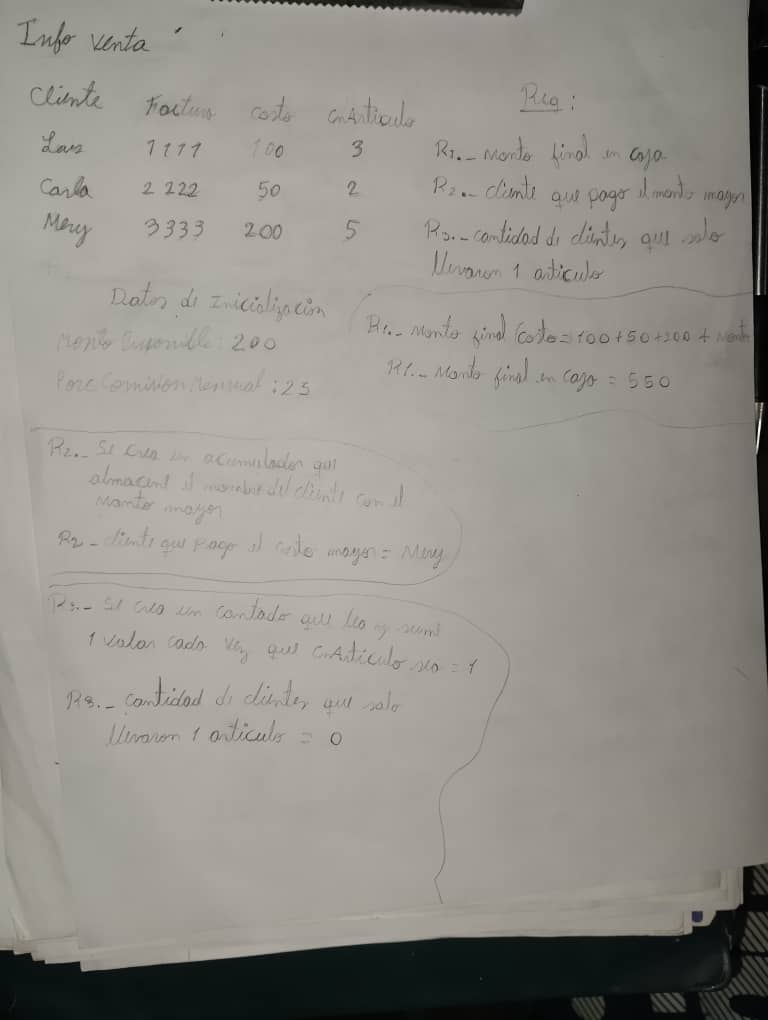 Info venta
Cliente Factura Costo CnArticulo
Luis 1111 100 3
Carla 2222 50 2
Mery 3333 200 5
Req:
R1.- Monto final en caja
R2.- cliente que pago el monto mayor
R3.- cantidad de clientes que solo
llevaron 1 articulo
Datos de Inicialización
Monto Disponible: 200
Porc Comision Mensual: 25
R1.- Monto final Costo = 100 + 50 + 200 + Monto
R1.- Monto final en caja = 550
R2.- Se crea un acumulador que
almacene el nombre del cliente con el
Monto mayor
R2 - cliente que pago el costo mayor = Mery
R3.- Se crea un contado que lea y sume
1 valor cada vez que CnArticulo sea = 1
R3.- cantidad de clientes que solo
llevaron 1 articulo = 0